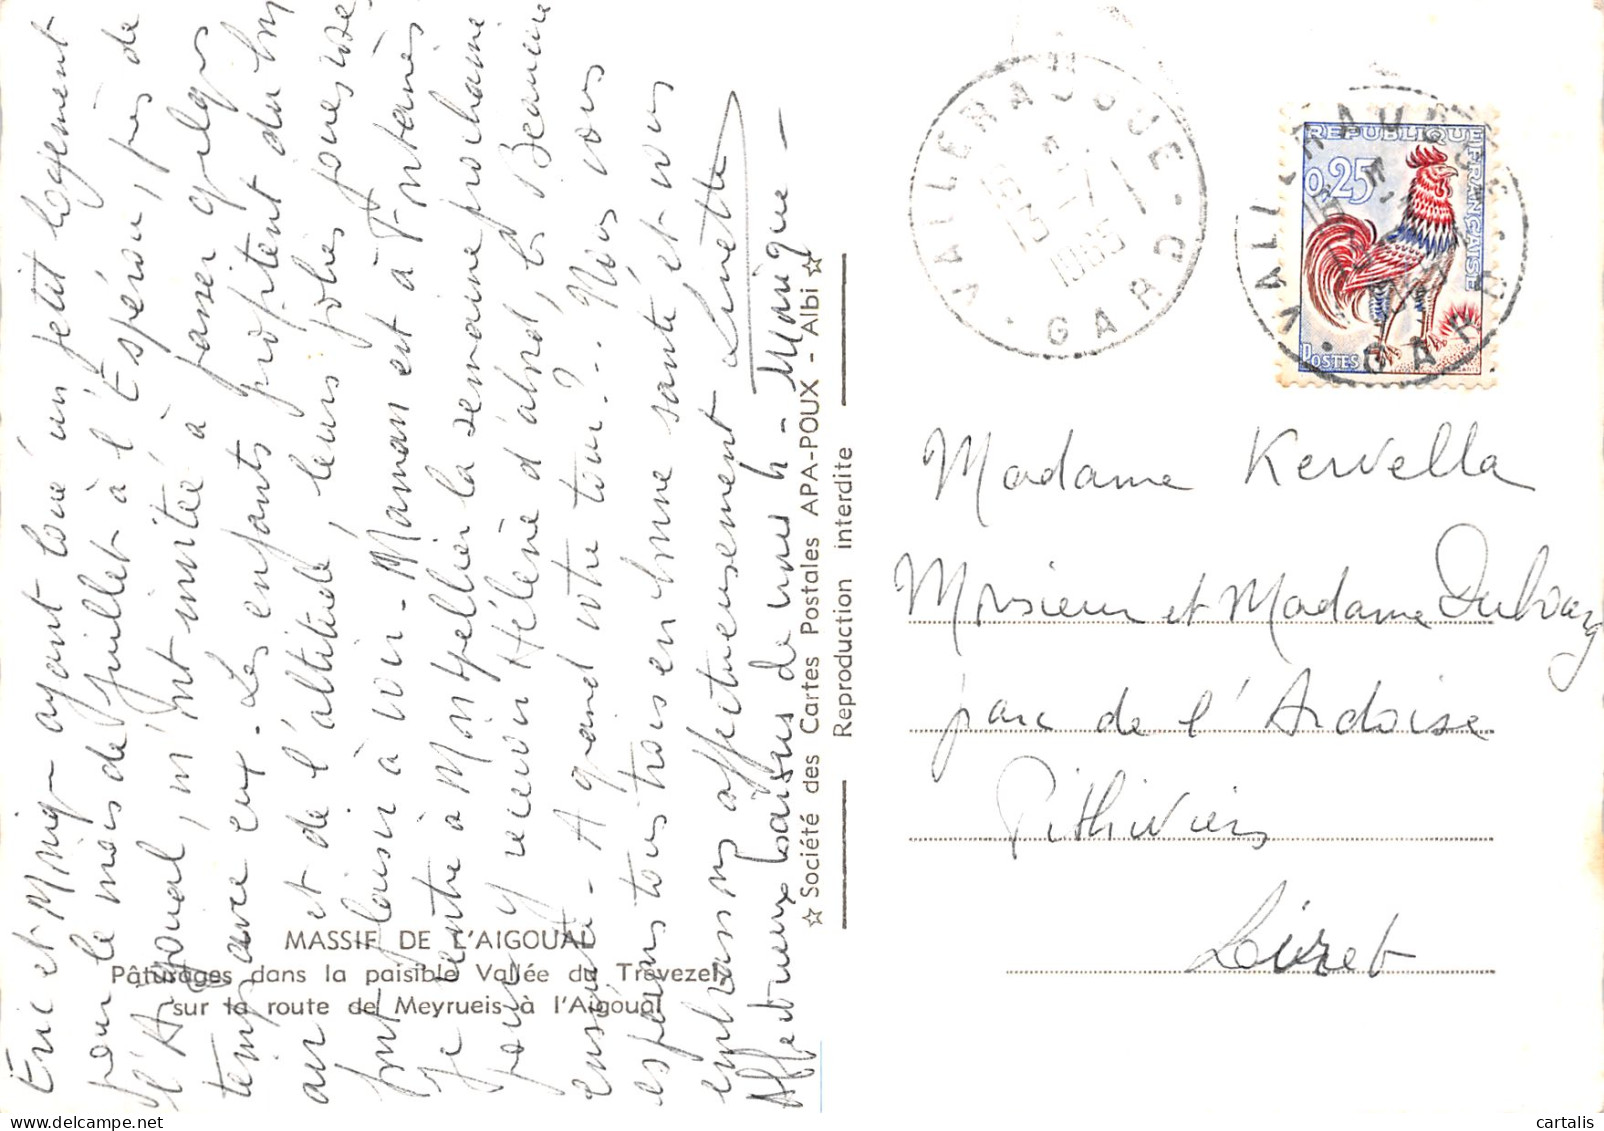 Eric et Monig - ayant loué un petit logement
pour le mois de juillet à l'Espérou, près de
l'Aigoual, m'ont invitée à passer quelques
temps avec eux. Les enfants profitent du bon
air et de l'altitude, leurs jolies joues roses
font plaisir à voir - Maman est à Fontanès
Je rentre à Montpellier la semaine prochaine
pour y recevoir Hélène d'abord, les Beaumure
ensuite - A quand votre tour?.. Nous vous
espérons tous trois en bonne santé et vous
embrassons affectueusement Linette
Affectueux baisers de nous 4 - Monique -
MASSIF DE L'AIGOUAL
Pâturages dans la paisible Vallée du Trévezel
sur la route de Meyrueis à l'Aigoual
☆ Société des Cartes Postales APA-POUX - Albi ☆
Reproduction interdite
VALLERAUGUE
15 H
13 -7
1965
GARD
REPUBLIQUE FRANÇAISE
0,25
POSTES
VALLERAUGUE
GARD
Madame Kervella
Monsieur et Madame Dubourg
parc de l'Ardoise
Pithiviers
Loiret
cartalis